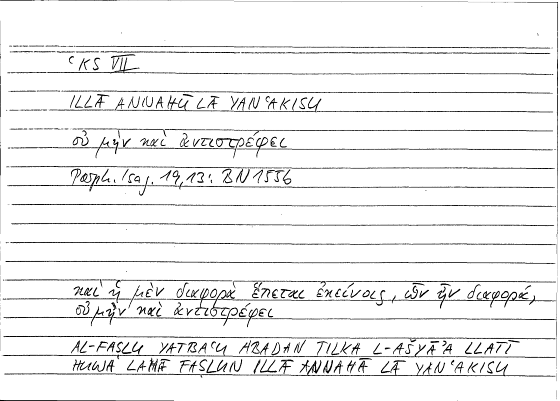 ʿKS VII
ILLĀ ANNAHŪ LĀ YANʿAKISU
οὐ μὴν καὶ ἀντιστρέφει
Porph. Isag. 19,13: BN 1556
καὶ ἡ μὲν διαφορὰ ἕπεται ἐκείνοις, ὧν ἦν διαφορά,
οὐ μὴν καὶ ἀντιστρέφει
AL-FAṢLU YATBAʿU ABADAN TILKA L-AŠYĀʾA LLATĪ
HUWA LAHĀ FAṢLUN ILLĀ ANNAHĀ LĀ YANʿAKISU